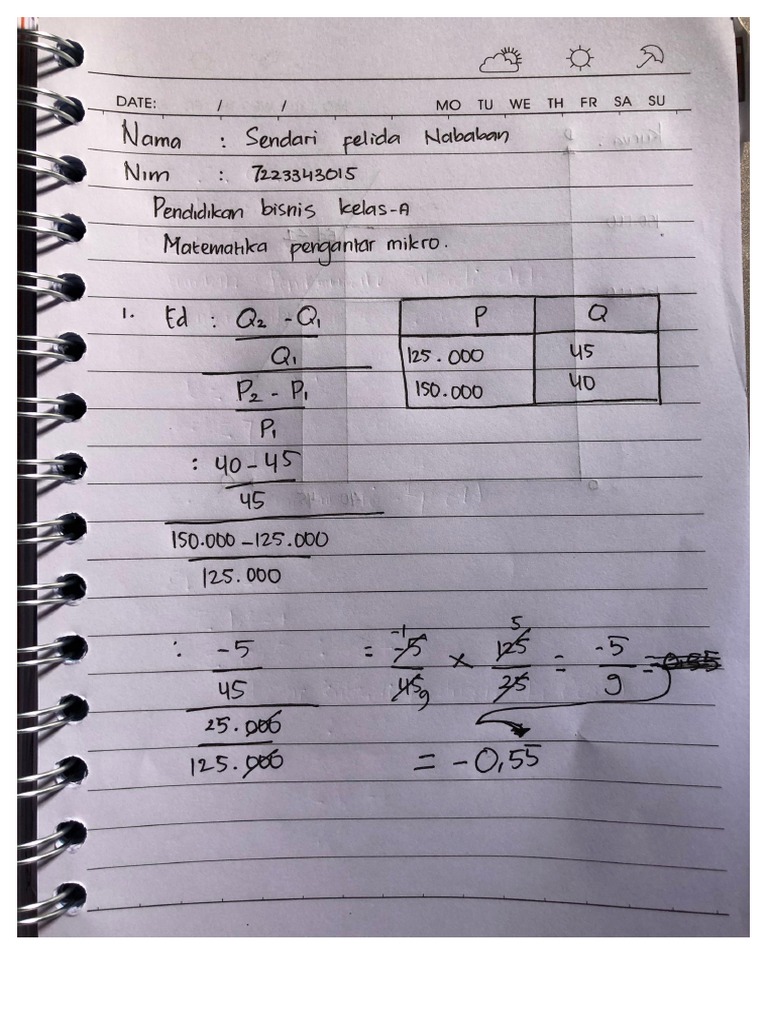 DATE: / / MO TU WE TH FR SA SU
Nama : Sendari felida Nababan
Nim : 7223343015
Pendidikan bisnis kelas-A
Matematika pengantar mikro.
1. Ed : Q₂ - Q₁
Q₁
P₂ - P₁
P₁
P Q
125.000 45
150.000 40
: 40 - 45
45
150.000 - 125.000
125.000
: -5
45
25.000
125.000
= -5/45 × 125/25 = -5/9
-1 9 5
= -0,55